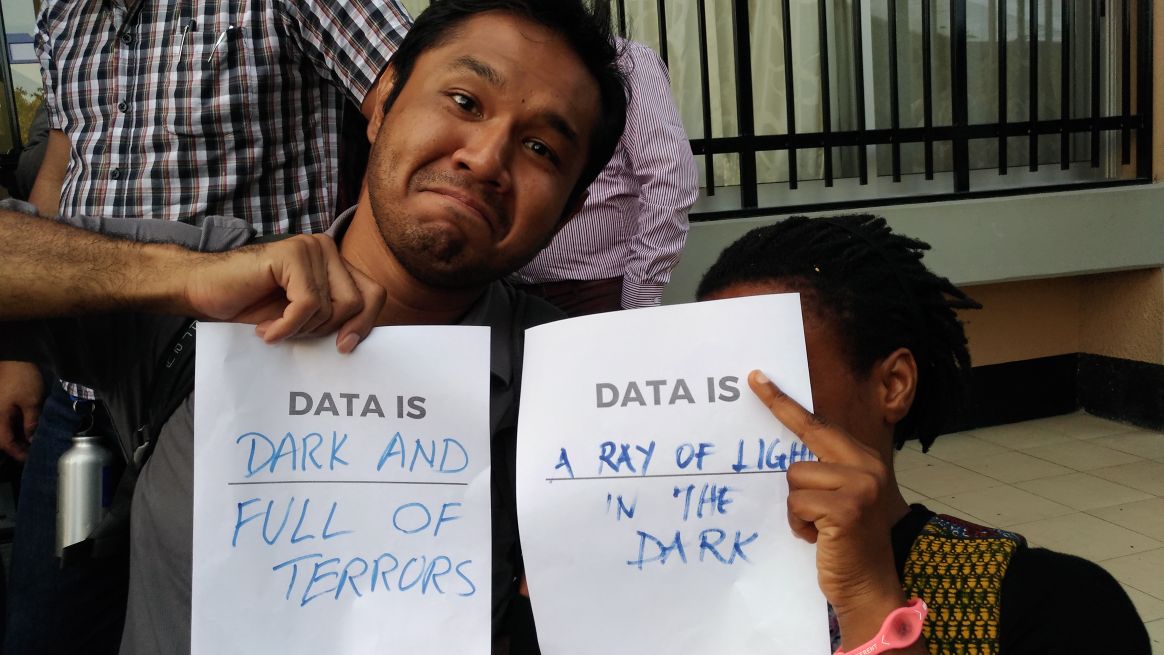 DATA IS
DARK AND
FULL OF
TERRORS
DATA IS
A RAY OF LIGH
IN THE
DARK